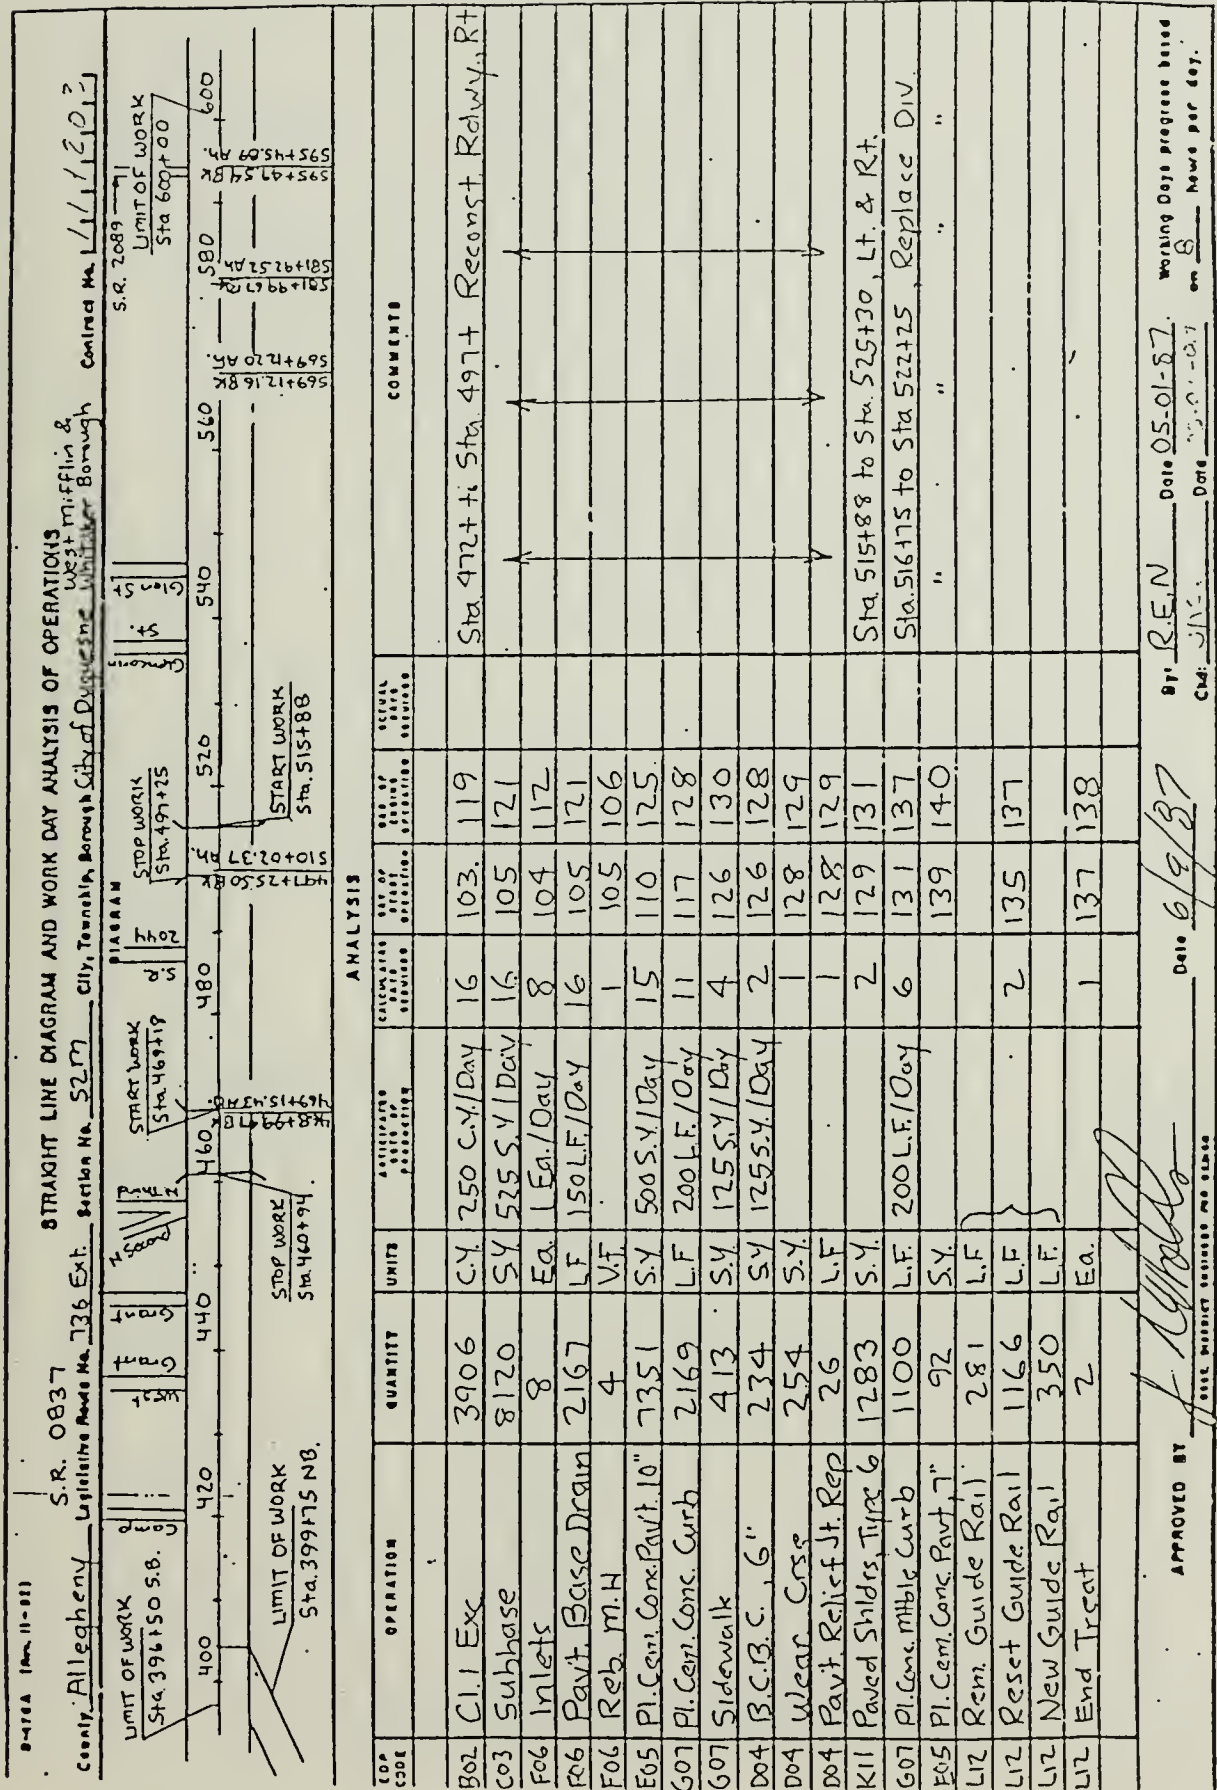 STRAIGHT LINE DIAGRAM AND WORK DAY ANALYSIS OF OPERATIONS
S.R. 0837
West Mifflin &
County Allegheny Legislative Route No. 736 Ext. Section No. 52M City, Township, Borough City of Duquesne Whitaker Borough Contract No.
DIAGRAM
LIMIT OF WORK
Sta. 396+50 S.B.
LIMIT OF WORK
Sta. 399+75 NB.
STOP WORK
Sta 460+94
START WORK
Sta 469+18
469+15.43 AH.
S.R. 2044
STOP WORK
Sta 497+25
497+25.50 BK
510+02.37 Ah.
START WORK
Sta. 515+88
St.
Glen St
569+12.16 BK
569+12.20 Ah.
581+99.67 BK
581+92.52 Ah
S.R. 2089
LIMIT OF WORK
Sta 600+00
595+49.54 BK
595+45.09 Ah.
400 420 440 460 480 520 540 560 580 600
ANALYSIS
COP CODE OPERATION QUANTITY UNITS ANTICIPATED RATE OF PRODUCTION CALCULATED DAYS REQUIRED DAY OF START OPERATION DAY OF ENDING OPERATION ACTUAL DAYS REQUIRED COMMENTS
B02 Cl. 1 Exc 3906 C.Y. 250 C.Y./Day 16 103. 119 Sta 472+ ti Sta. 497+ Reconst. Rdwy., Rt
C03 Subbase 8120 S.Y. 525 S.Y./Day 16 105 121
F06 Inlets 8 Ea. 1 Ea./Day 8 104 112
F06 Pavt. Base Drain 2167 LF 150 L.F./Day 16 105 121
F06 Reb. M.H 4 V.F. 1 105 106
E05 Pl. Cem. Conc. Pavt. 10" 7351 S.Y. 500 S.Y./Day 15 110 125
G07 Pl. Cem. Conc. Curb 2169 L.F 200 L.F./Day 11 117 128
G07 Sidewalk 413 S.Y. 125 S.Y./Day 4 126 130
D04 B.C.B.C., 6" 234 S.Y 125 S.Y./Day 2 126 128
D04 Wear. Crse 254 S.Y. 1 128 129
D04 Pavt. Relief Jt. Rep 26 L.F 1 128 129
K11 Paved Shldrs, Type 6 1283 S.Y. 2 129 131 Sta. 515+88 to Sta. 525+30, Lt. & Rt.
G07 Pl. Conc. Mtble. Curb 1100 L.F. 200 L.F./Day 6 131 137 Sta. 516+75 to Sta 522+25, Replace Div.
E05 Pl. Cem. Conc. Pavt, 7" 92 S.Y. 139 140 " " " "
L12 Rem. Guide Rail 281 L.F
L12 Reset Guide Rail 1166 L.F 2 135 137
L12 New Guide Rail 350 L.F.
L12 End Treat 2 Ea. 1 137 138
APPROVED BY Date 6/9/87 By: R.E.N Date 05-01-87. Working Days progress based
Ckd: Date on 8 hours per day.